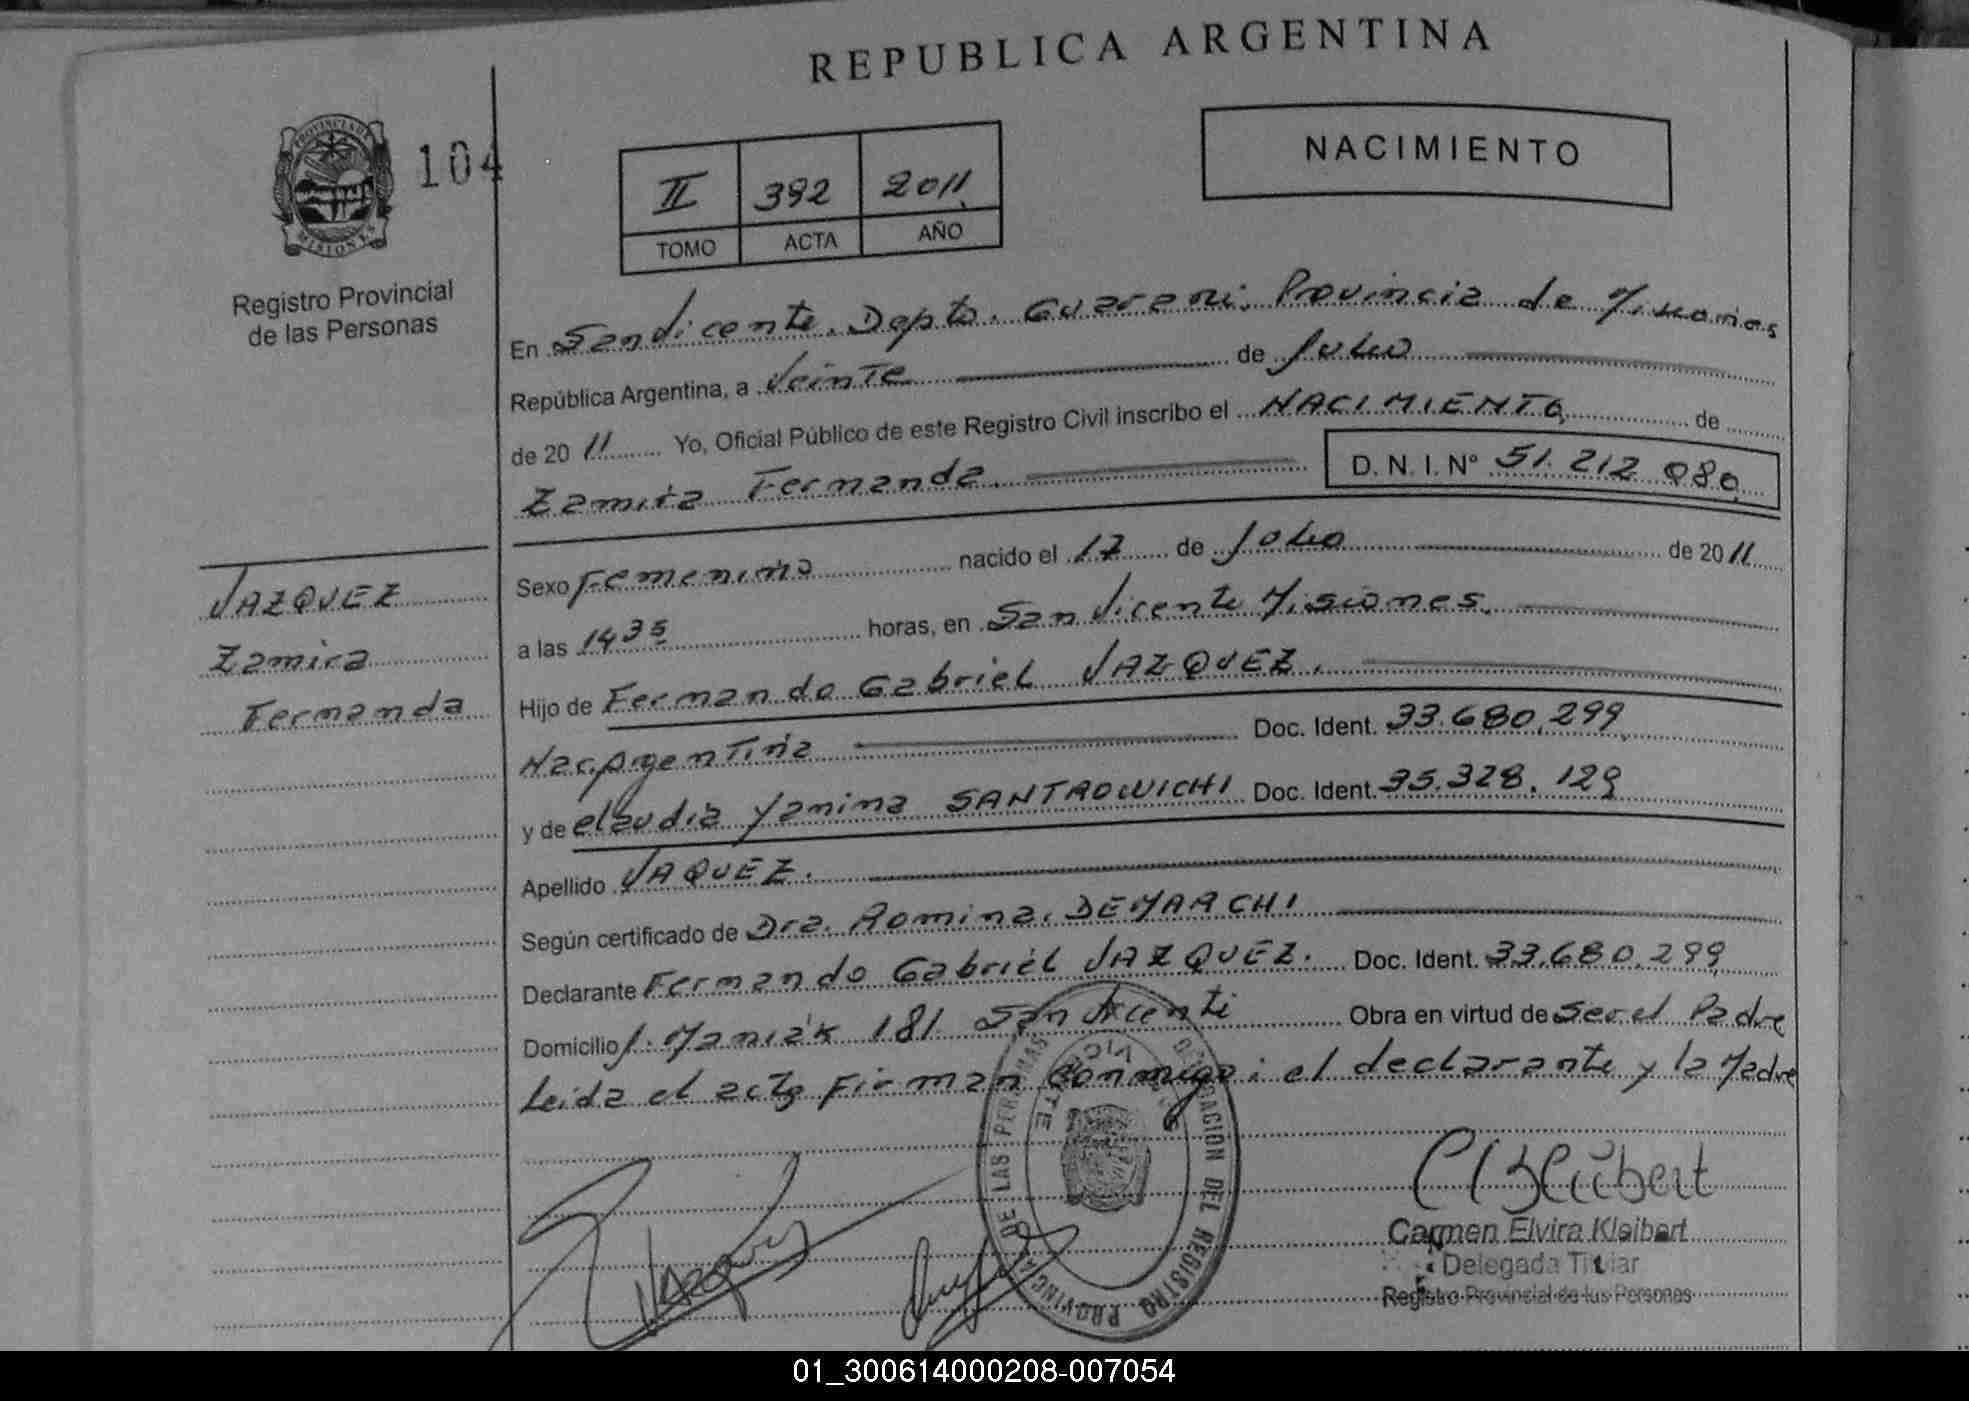 REPUBLICA ARGENTINA
PROVINCIA DE MISIONES
104
NACIMIENTO
II 392 2011
TOMO ACTA AÑO
Registro Provincial
de las Personas
En San Vicente. Depto. Guarani. Provincia de Misiones
República Argentina, a Veinte de Julio
de 2011 Yo, Oficial Público de este Registro Civil inscribo el NACIMIENTO de
Zamira Fernanda. D. N. I. Nº 51.212.080
VAZQUEZ
Zamira
Fernanda
Sexo Femenino nacido el 17 de Julio de 2011
a las 1435 horas, en San Vicente Misiones.
Hijo de Fernando Gabriel VAZQUEZ.
Nac. Argentina Doc. Ident. 33.680.299
y de Claudia Yanina SANTROWICHI Doc. Ident. 35.328.129
Apellido VAQUEZ.
Según certificado de Dra. Romina. DEMARCHI
Declarante Fernando Gabriel VAZQUEZ. Doc. Ident. 33.680.299
Domicilio 181 San Vicente Obra en virtud de Ser el Padre
Leida el acta Firman Conmigo: el declarante y la Madre
DELEGACION DEL REGISTRO PROVINCIAL DE LAS PERSONAS
Vazquez
C Kleibert
Carmen Elvira Kleibert
Delegada Titular
Registro Provincial de las Personas
01_300614000208-007054